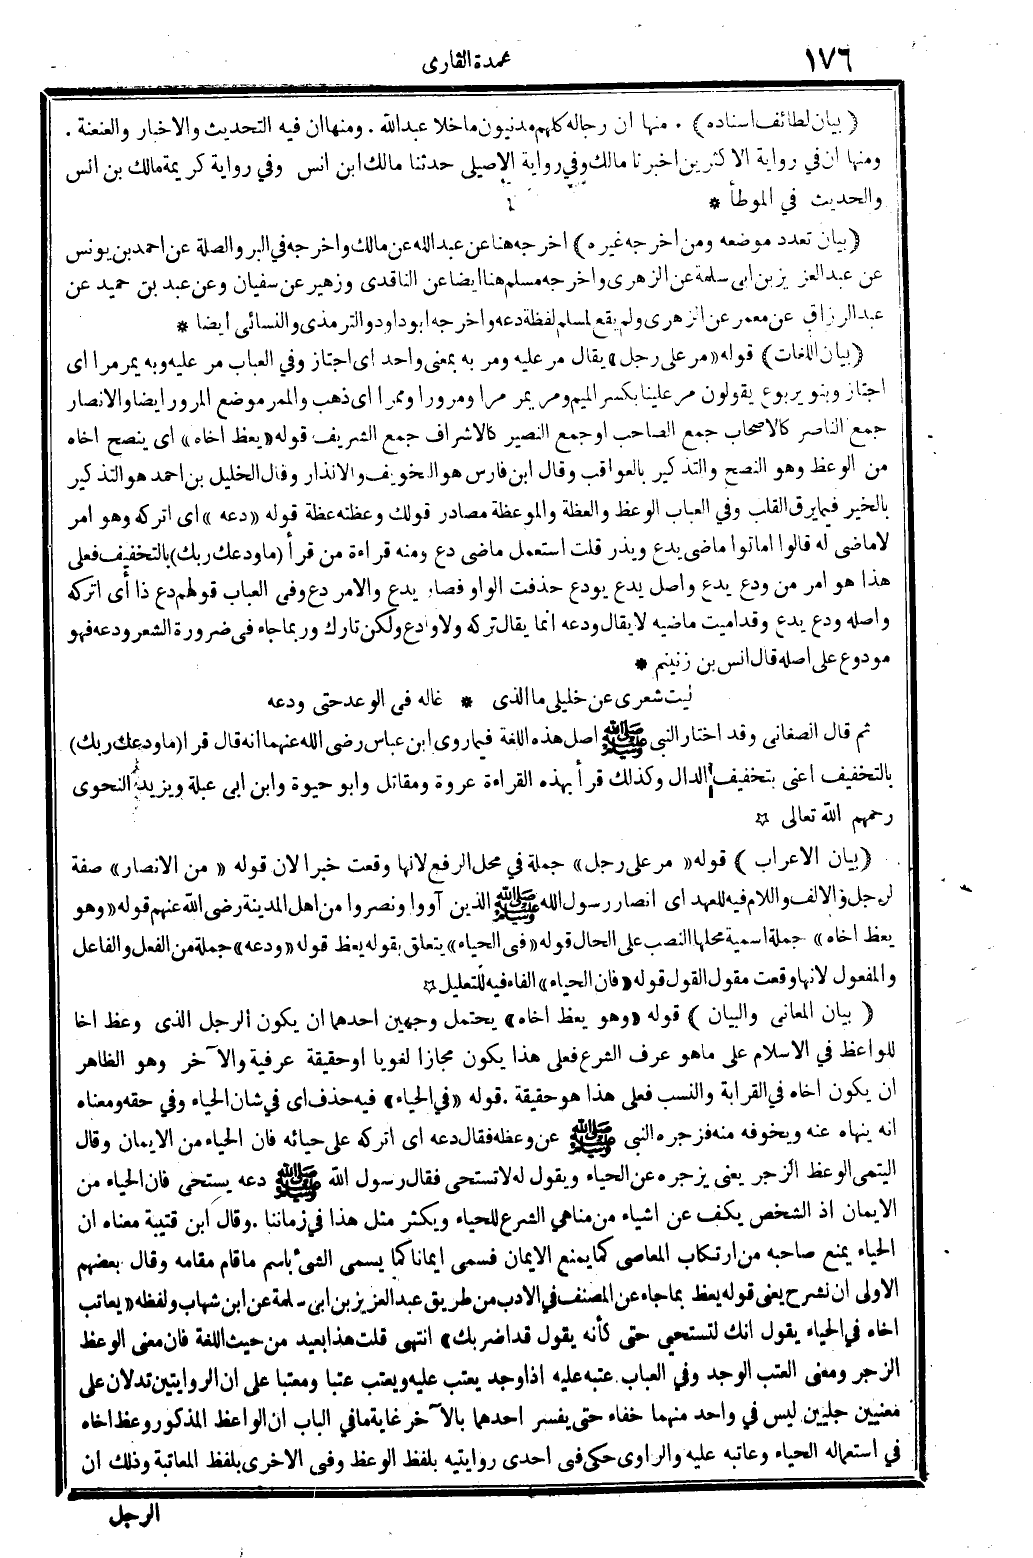 ١٧٦
عمدة القارى
( بيان لطائف اسناده ) . منها ان رجاله كلهم مدنيون ماخلا عبدالله . ومنها ان فيه التحديث والاخبار والعنعنة .
ومنها ان في رواية الاكثرين اخبرنا مالك وفي رواية الاصيلى حدثنا مالك ابن انس وفي رواية كريمة مالك بن انس
والحديث في الموطأ *
( بيان تعدد موضعه ومن اخرجه غيره ) اخرجه هنا عن عبدالله عن مالك واخرجه في البر والصلة عن احمد بن يونس
عن عبد العزيز بن ابى سلمة عن الزهرى واخرجه مسلم هنا ايضا عن الناقدى وزهير عن سفيان وعن عبد بن حميد عن
عبد الرزاق عن معمر عن الزهرى ولم يقع لمسلم لفظة دعه واخرجه ابو داود والترمذى والنسائى ايضا *
( بيان اللغات ) قوله «مر على رجل» يقال مر عليه ومر به بمعنى واحد اى اجتاز وفي العباب مر عليه وبه يمر مرا اى
اجتاز وبنو يربوع يقولون مر علينا بكسر الميم ومر يمر مرا ومرورا وممرا اى ذهب والممر موضع المرور ايضا والانصار
جمع الناصر كالاصحاب جمع الصاحب او جمع النصير كالاشراف جمع الشريف قوله «يعظ اخاه» اى ينصح اخاه
من الوعظ وهو النصح والتذكير بالعواقب وقال ابن فارس هو التخويف والانذار وقال الخليل بن احمد هو التذكير
بالخير فيما يرق القلب وفي العباب الوعظ والعظة والموعظة مصادر قولك وعظته عظة قوله «دعه» اى اتركه وهو امر
لاماضى له قالوا اماتوا ماضى يدع ويذر قلت استعمل ماضى دع ومنه قراءة من قرأ (ماودعك ربك) بالتخفيف فعلى
هذا هو امر من ودع يدع واصل يدع يودع حذفت الواو فصار يدع والامر دع وفى العباب قولهم دع ذا أى اتركه
واصله ودع يدع وقد اميت ماضيه لا يقال ودعه انما يقال تركه ولا وادع ولكن تارك وربما جاء في ضرورة الشعر ودعه فهو
مودوع على اصله قال انس بن زنيم *
ليت شعرى عن خليلى ما الذى * غاله فى الوعد حتى ودعه
ثم قال الصغانى وقد اختار النبى ﷺ اصل هذه اللغة فيما روى ابن عباس رضى الله عنهما انه قال قرا (ماودعك ربك)
بالتخفيف اعنى بتخفيف الدال وكذلك قرأ بهذه القراءة عروة ومقاتل وابو حيوة وابن ابى عبلة ويزيد النحوى
رحمهم الله تعالى ☆
( بيان الاعراب ) قوله «مر على رجل» جملة في محل الرفع لانها وقعت خبرا لان قوله «من الانصار» صفة
لرجل والالف واللام فيه للعهد اى انصار رسول الله ﷺ الذين آووا ونصروا من اهل المدينة رضى الله عنهم قوله «وهو
يعظ اخاه» جملة اسمية محلها النصب على الحال قوله «فى الحياء» يتعلق بقوله يعظ قوله «ودعه» جملة من الفعل والفاعل
والمفعول لانها وقعت مقول القول قوله «فان الحياء» الفاء فيه للتعليل ☆
( بيان المعانى والبيان ) قوله «وهو يعظ اخاه» يحتمل وجهين احدهما ان يكون الرجل الذى وعظ اخا
للواعظ في الاسلام على ماهو عرف الشرع فعلى هذا يكون مجازا لغويا او حقيقة عرفية والآخر وهو الظاهر
ان يكون اخاه في القرابة والنسب فعلى هذا هو حقيقة . قوله «في الحياء» فيه حذف اى في شان الحياء وفي حقه ومعناه
انه ينهاه عنه ويخوفه منه فزجره النبى ﷺ عن وعظه فقال دعه اى اتركه على حيائه فان الحياء من الايمان وقال
التيمى الوعظ الزجر يعنى يزجره عن الحياء ويقول له لا تستحى فقال رسول الله ﷺ دعه يستحى فان الحياء من
الايمان اذ الشخص يكف عن اشياء من مناهى الشرع للحياء ويكثر مثل هذا في زماننا . وقال ابن قتيبة معناه ان
الحياء يمنع صاحبه من ارتكاب المعاصى كما يمنع الايمان فسمى ايمانا كما يسمى الشئ باسم ماقام مقامه وقال بعضهم
الاولى ان نشرح يعنى قوله يعظ بما جاء عن المصنف في الادب من طريق عبد العزيز بن ابى سلمة عن ابن شهاب ولفظه «يعاتب
اخاه في الحياء يقول انك لتستحيى حتى كأنه يقول قد اضر بك» انتهى قلت هذا بعيد من حيث اللغة فان معنى الوعظ
الزجر ومعنى العتب الوجد وفي العباب عتب عليه اذا وجد يعتب عليه ويعتب عتبا ومعتبا على ان الروايتين تدلان على
معنيين جليين ليس في واحد منهما خفاء حتى يفسر احدهما بالآخر غاية مافي الباب ان الواعظ المذكور وعظ اخاه
في استعماله الحياء وعاتبه عليه والراوى حكى فى احدى روايتيه بلفظ الوعظ وفى الاخرى بلفظ المعاتبة وذلك ان
الرجل